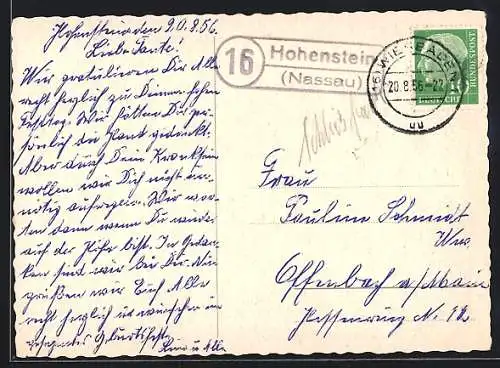 Hohenstein den 20.8.56.
Liebe Tante!
Wir gratulieren Dir Alle
recht herzlich zu Deinem hohen
Festtag. Wir hätten Dir per-
sönlich die Hand gedrückt.
Aber durch Dein Kranksein
wollen wir Dich nicht un-
nötig aufregen. Wir war-
ten dann wenn Du wieder
auf der Höhe bist. In Gedan-
ken sind wir bei Dir. Nun
grüßen wir Euch Alle
recht herzlich u. wünschen ein
gesegnetes Geburtsfest.
u. Alle
16 Hohenstein
(Nassau)
WIESBADEN
20.8.56-22
DEUTSCHE BUNDESPOST
10
Frau
Pauline Schmidt
Ww.
Offenbach a/Main
Hessenring N. 12.